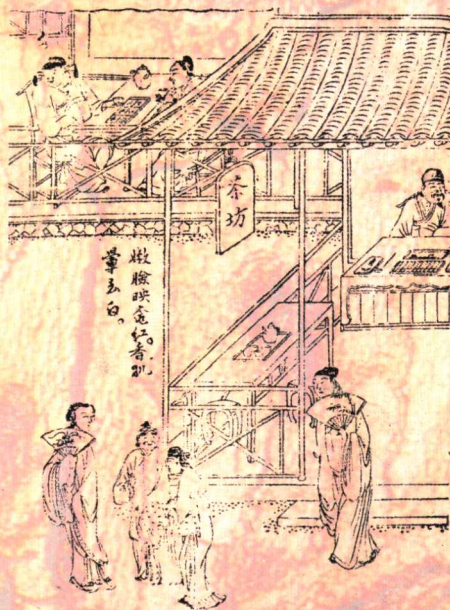 茶坊
嫩臉映霞紅。香肌
暈玉白。